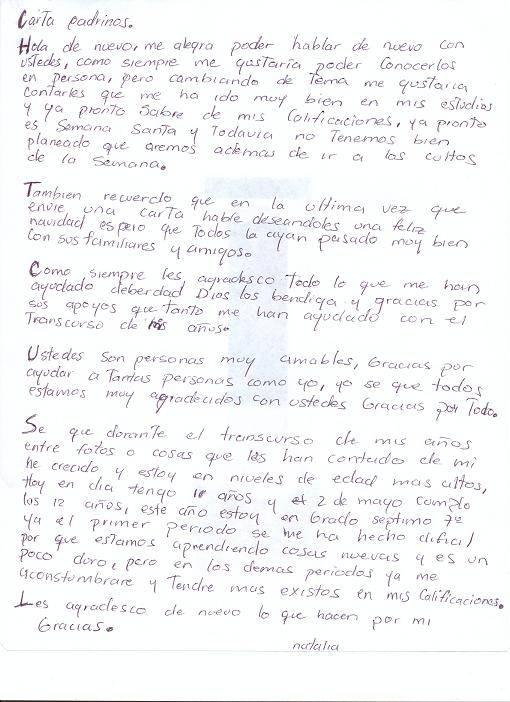 Carta padrinos.
Hola de nuevo, me alegra poder hablar de nuevo con
ustedes, como siempre me gustaria poder conocerlos
en persona, pero cambiando de tema me gustaria
contarles que me ha ido muy bien en mis estudios
y ya pronto sabre de mis Calificaciones, ya pronto
es Semana Santa y Todavia no Tenemos bien
planeado que aremos ademas de ir a los cultos
de la semana.
Tambien recuerdo que en la ultima vez que
envie una carta hable deseandoles una feliz
navidad espero que Todos la ayan pasado muy bien
Con sus familiares y amigos.
Como siempre les agradesco Todo lo que me han
ayudado deberdad Dios los bendiga y gracias por
sus apoyos que tanto me han ayudado con el
Transcurso de mis años.
Ustedes son personas muy amables, Gracias por
ayudar a Tantas personas como yo, yo se que todos
estamos muy agradecidos con ustedes Gracias por Todo.
Se que durante el transcurso de mis años
entre fotos o cosas que les han contado de mi
he crecido y estoy en niveles de edad mas altos,
Hoy en dia tengo 11 años y el 2 de mayo cumplo
los 12 años, este año estoy en Grado septimo 7º
ya el primer periodo se me ha hecho dificil
por que estamos aprendiendo cosas nuevas y es un
poco duro, pero en los demas periodos ya me
aconstumbrare y Tendre mas existos en mis Calificaciones.
Les agradesco de nuevo lo que hacen por mi
Gracias.
natalia